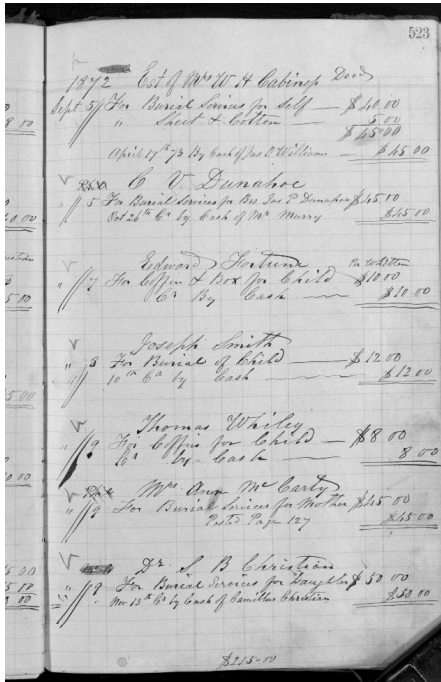 523
1872 Est of Mrs W H Cabiness Decd
Sept 5 For Burial Services for Self — $40.00
" Sheet & Cotton — 5.00
$45.00
April 17th 73 By Cash of Jas D. Williams — $45.00
C V Dunahoe
" 5 For Burial Services for Bro Jas P. Dunahoe $45.00
Oct 26th Cr by Cash of Mr Murry $45.00
Edward Fortune
" 7 For Coffin & Box for Child $10.00
Cr By Cash — $10.00
Joseph Smith
" 8 For Burial of Child — $12.00
10th Cr by Cash — $12.00
Thomas Whiley
" 9 For Coffin for Child — $8.00
Cr by Cash — 8.00
Mrs Ann McCarty
" 9 For Burial Services for Mother $45.00
Posted Page 127 $45.00
Dr. S B Christian
" 9 For Burial Services for Daughter $50.00
Nov 13th Cr by Cash of Camillus Christian $50.00
$215.00